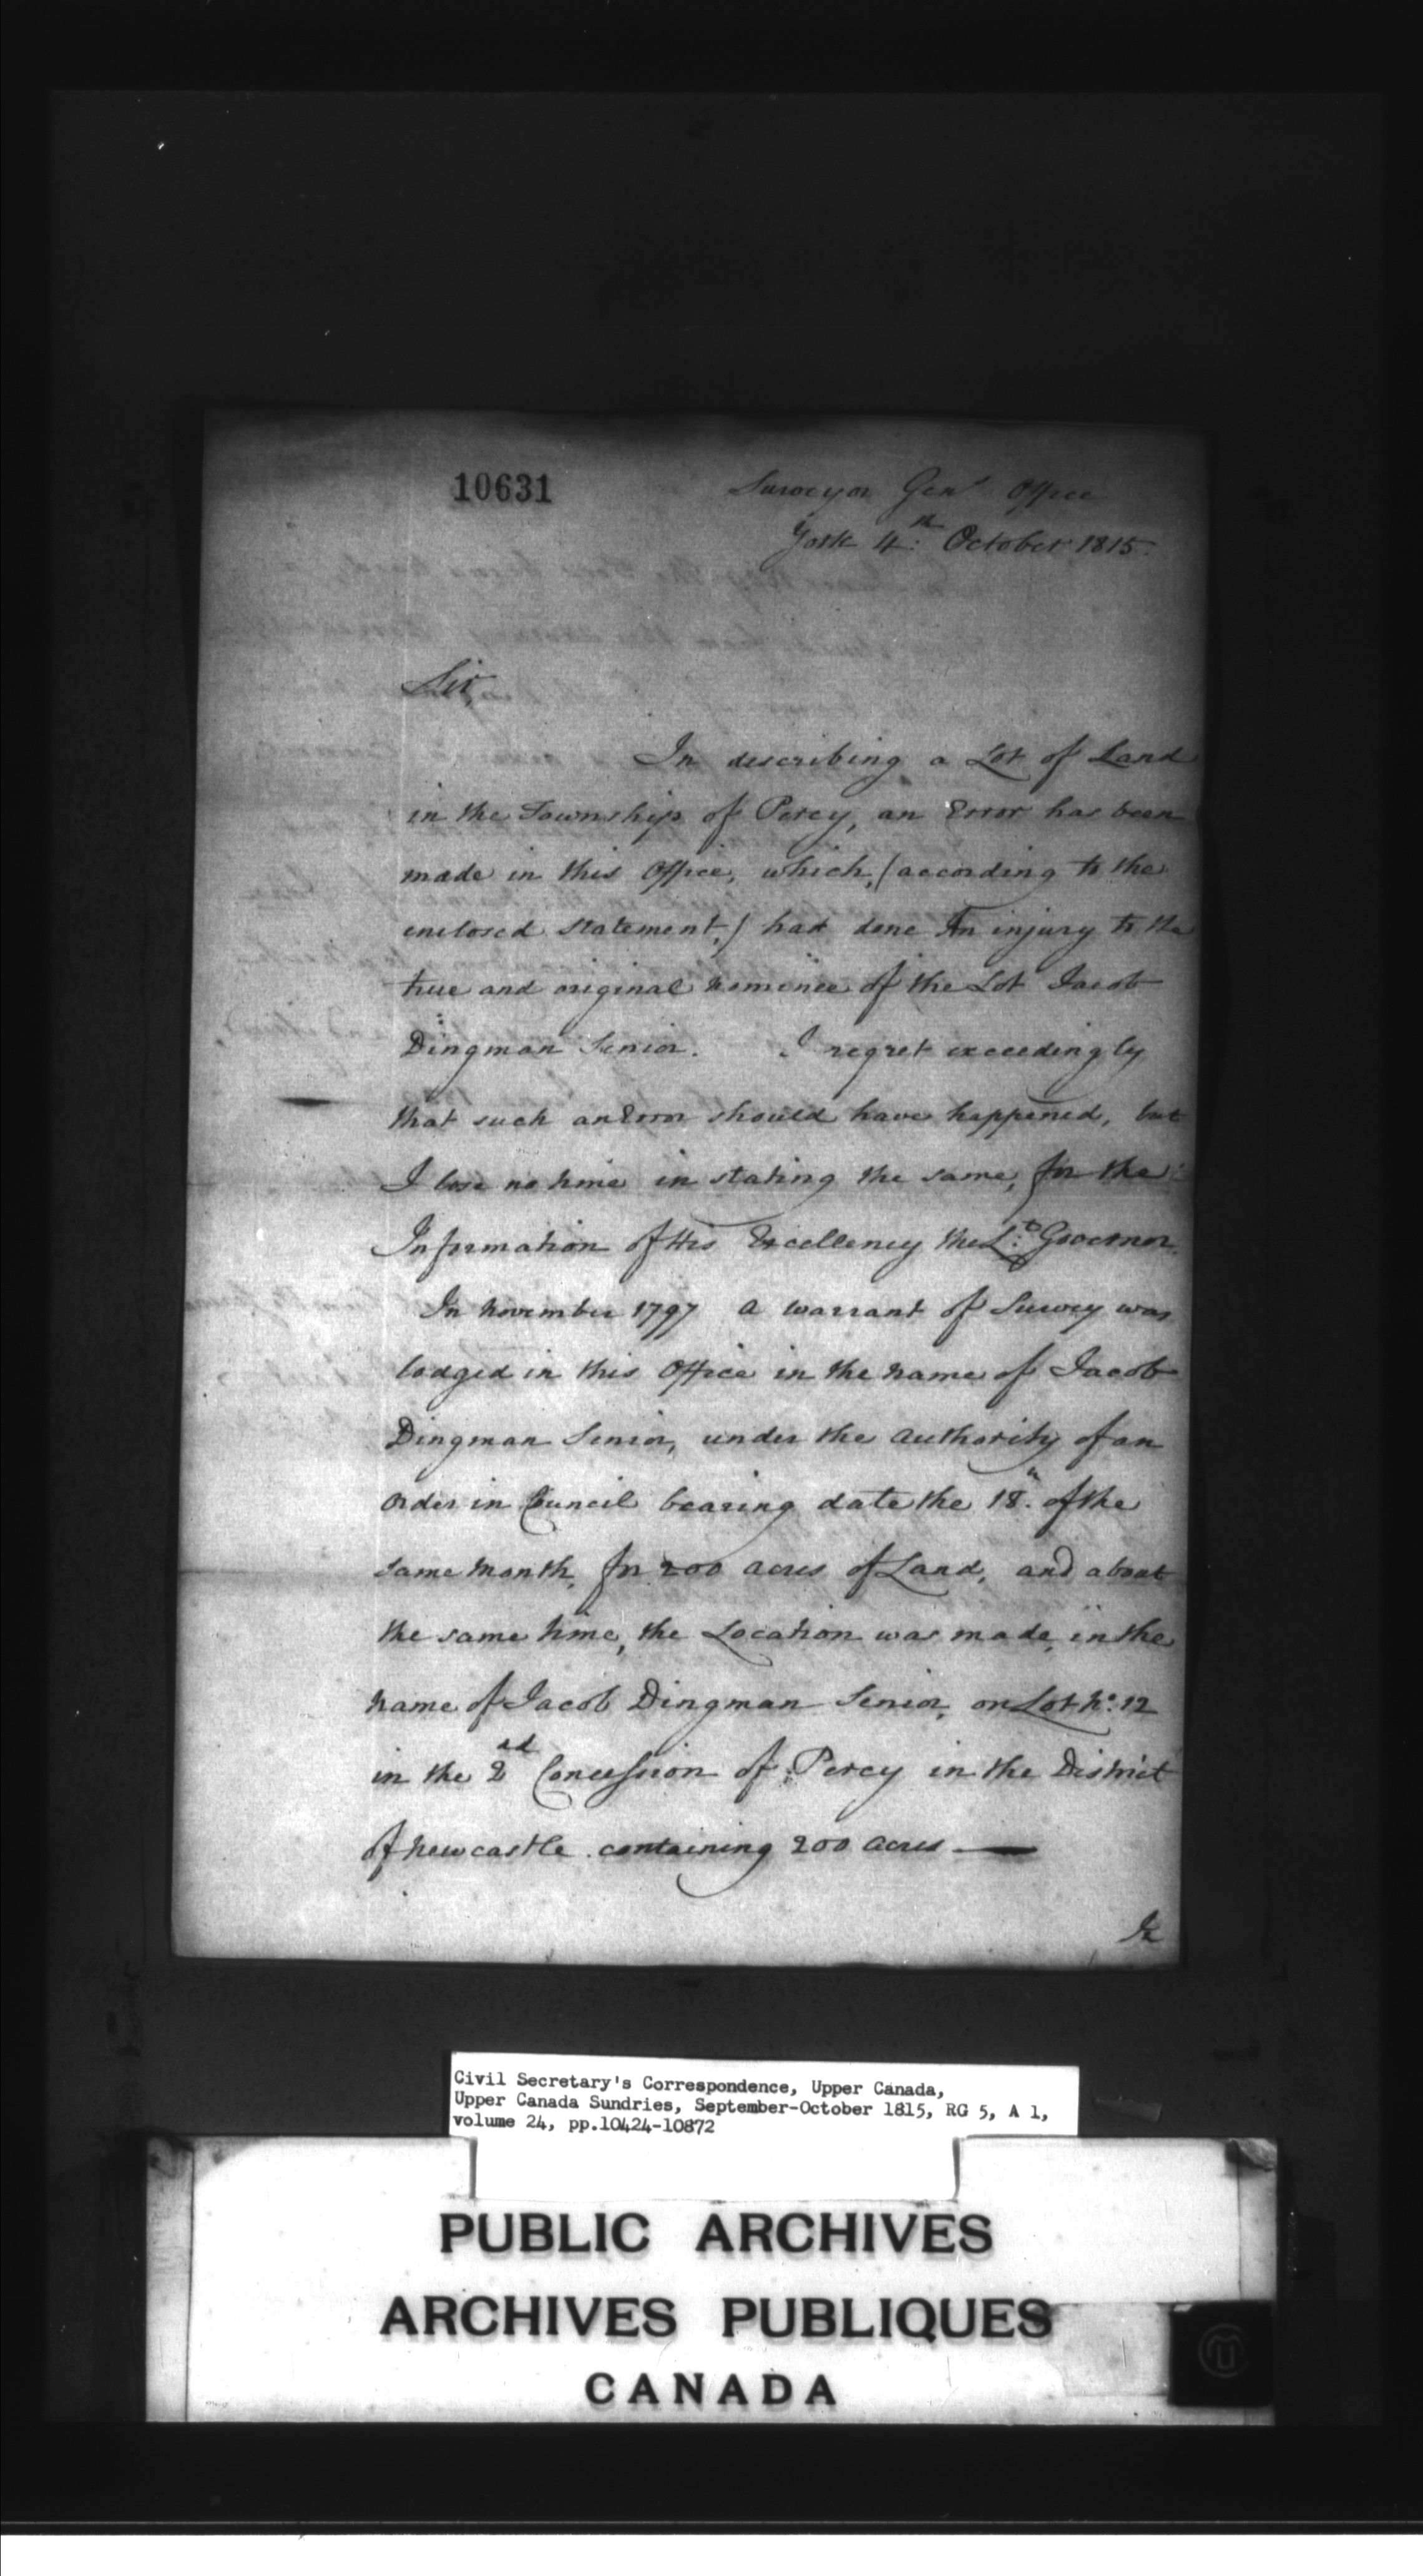 10631
Surveyor Genl Office
York 4th October 1815.
Sir,
In describing a Lot of Land
in the Township of Percy, an Error has been
made in this Office, which, (according to the
enclosed statement,) had done An injury to the
true and original nominee of the Lot Jacob
Dingman Senior. I regret exceedingly
that such an Error should have happened, but
I lose no time in stating the same, for the
Information of His Excellency the Lt. Governor.
In November 1797 a warrant of Survey was
lodged in this Office in the name of Jacob
Dingman Senior, under the authority of an
Order in Council bearing date the 18th of the
same Month, for 200 acres of Land, and about
the same time, the Location was made, in the
name of Jacob Dingman Senior, on Lot No. 12
in the 2nd Concession of Percy in the District
of Newcastle containing 200 acres —
Civil Secretary's Correspondence, Upper Canada,
Upper Canada Sundries, September-October 1815, RG 5, A 1,
volume 24, pp.10424-10872
PUBLIC ARCHIVES
ARCHIVES PUBLIQUES
CANADA